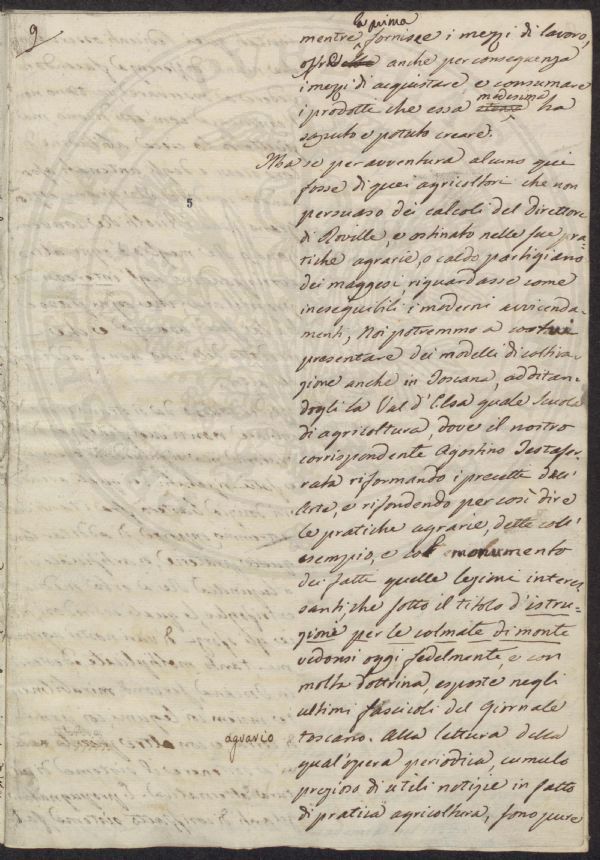 9
la prima
mentre fornisce i mezzi di lavoro,
anche per conseguenza
i mezzi di acquistare, e consumare
medesima
i prodotti che essa stessa ha
saputo e potuto creare.
Ma se per avventura alcuno qui
fosse di quei agricoltori che non
persuaso dei calcoli del direttore
di Roville, e ostinato nelle sue pra=
tiche agrarie, o caldo partigiano
dei maggesi riguardasse come
ineseguibili i moderni avvicenda=
menti, Noi potremmo a costui
presentare dei modelli di coltiva=
zione anche in Toscana, additan=
dogli la Val d'Elsa quale scuola
di agricoltura, dove il nostro
corrispondente Agostino Testafer=
rata riformando i precetti dell'
Arte, e rifondendo per così dire
le pratiche agrarie, dette coll'
esempio, e col monumento
dei fatti quelle lezioni interes=
santi, che sotto il titolo d'istru=
zione per le colmate di monte
vedonsi oggi fedelmente, e con
molta dottrina, esposte negli
ultimi fascicoli del Giornale
agrario
toscano. Alla lettura della
qual'opera periodica, cumulo
prezioso di utili notizie in fatto
di pratica agricoltura, sono pure
5